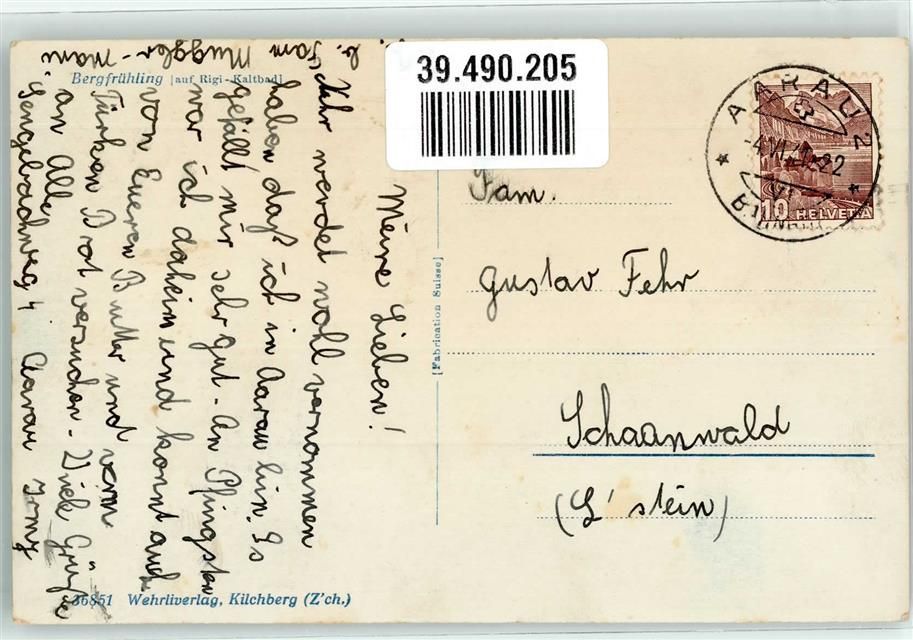 39.490.205
Bergfrühling [auf Rigi-Kaltbad]
Meine Lieben!
Ihr werdet wohl vernommen
haben daß ich in Aarau bin. Es
gefällt mir sehr gut. - An Pfingsten
war ich daheim und konnt auch
von Eueren Butter und vom
Türken Brot versuchen - Viele Grüße
an Alle
Gengebachweg 4 Aarau Irmy
b. Fam Muggler-mann
[Fabrication Suisse]
AARAU 2
-4.VI.41-22
10 HELVETIA
Fam.
Gustav Fehr
Schaanwald
(L'stein)
36851 Wehrliverlag, Kilchberg (Z'ch.)